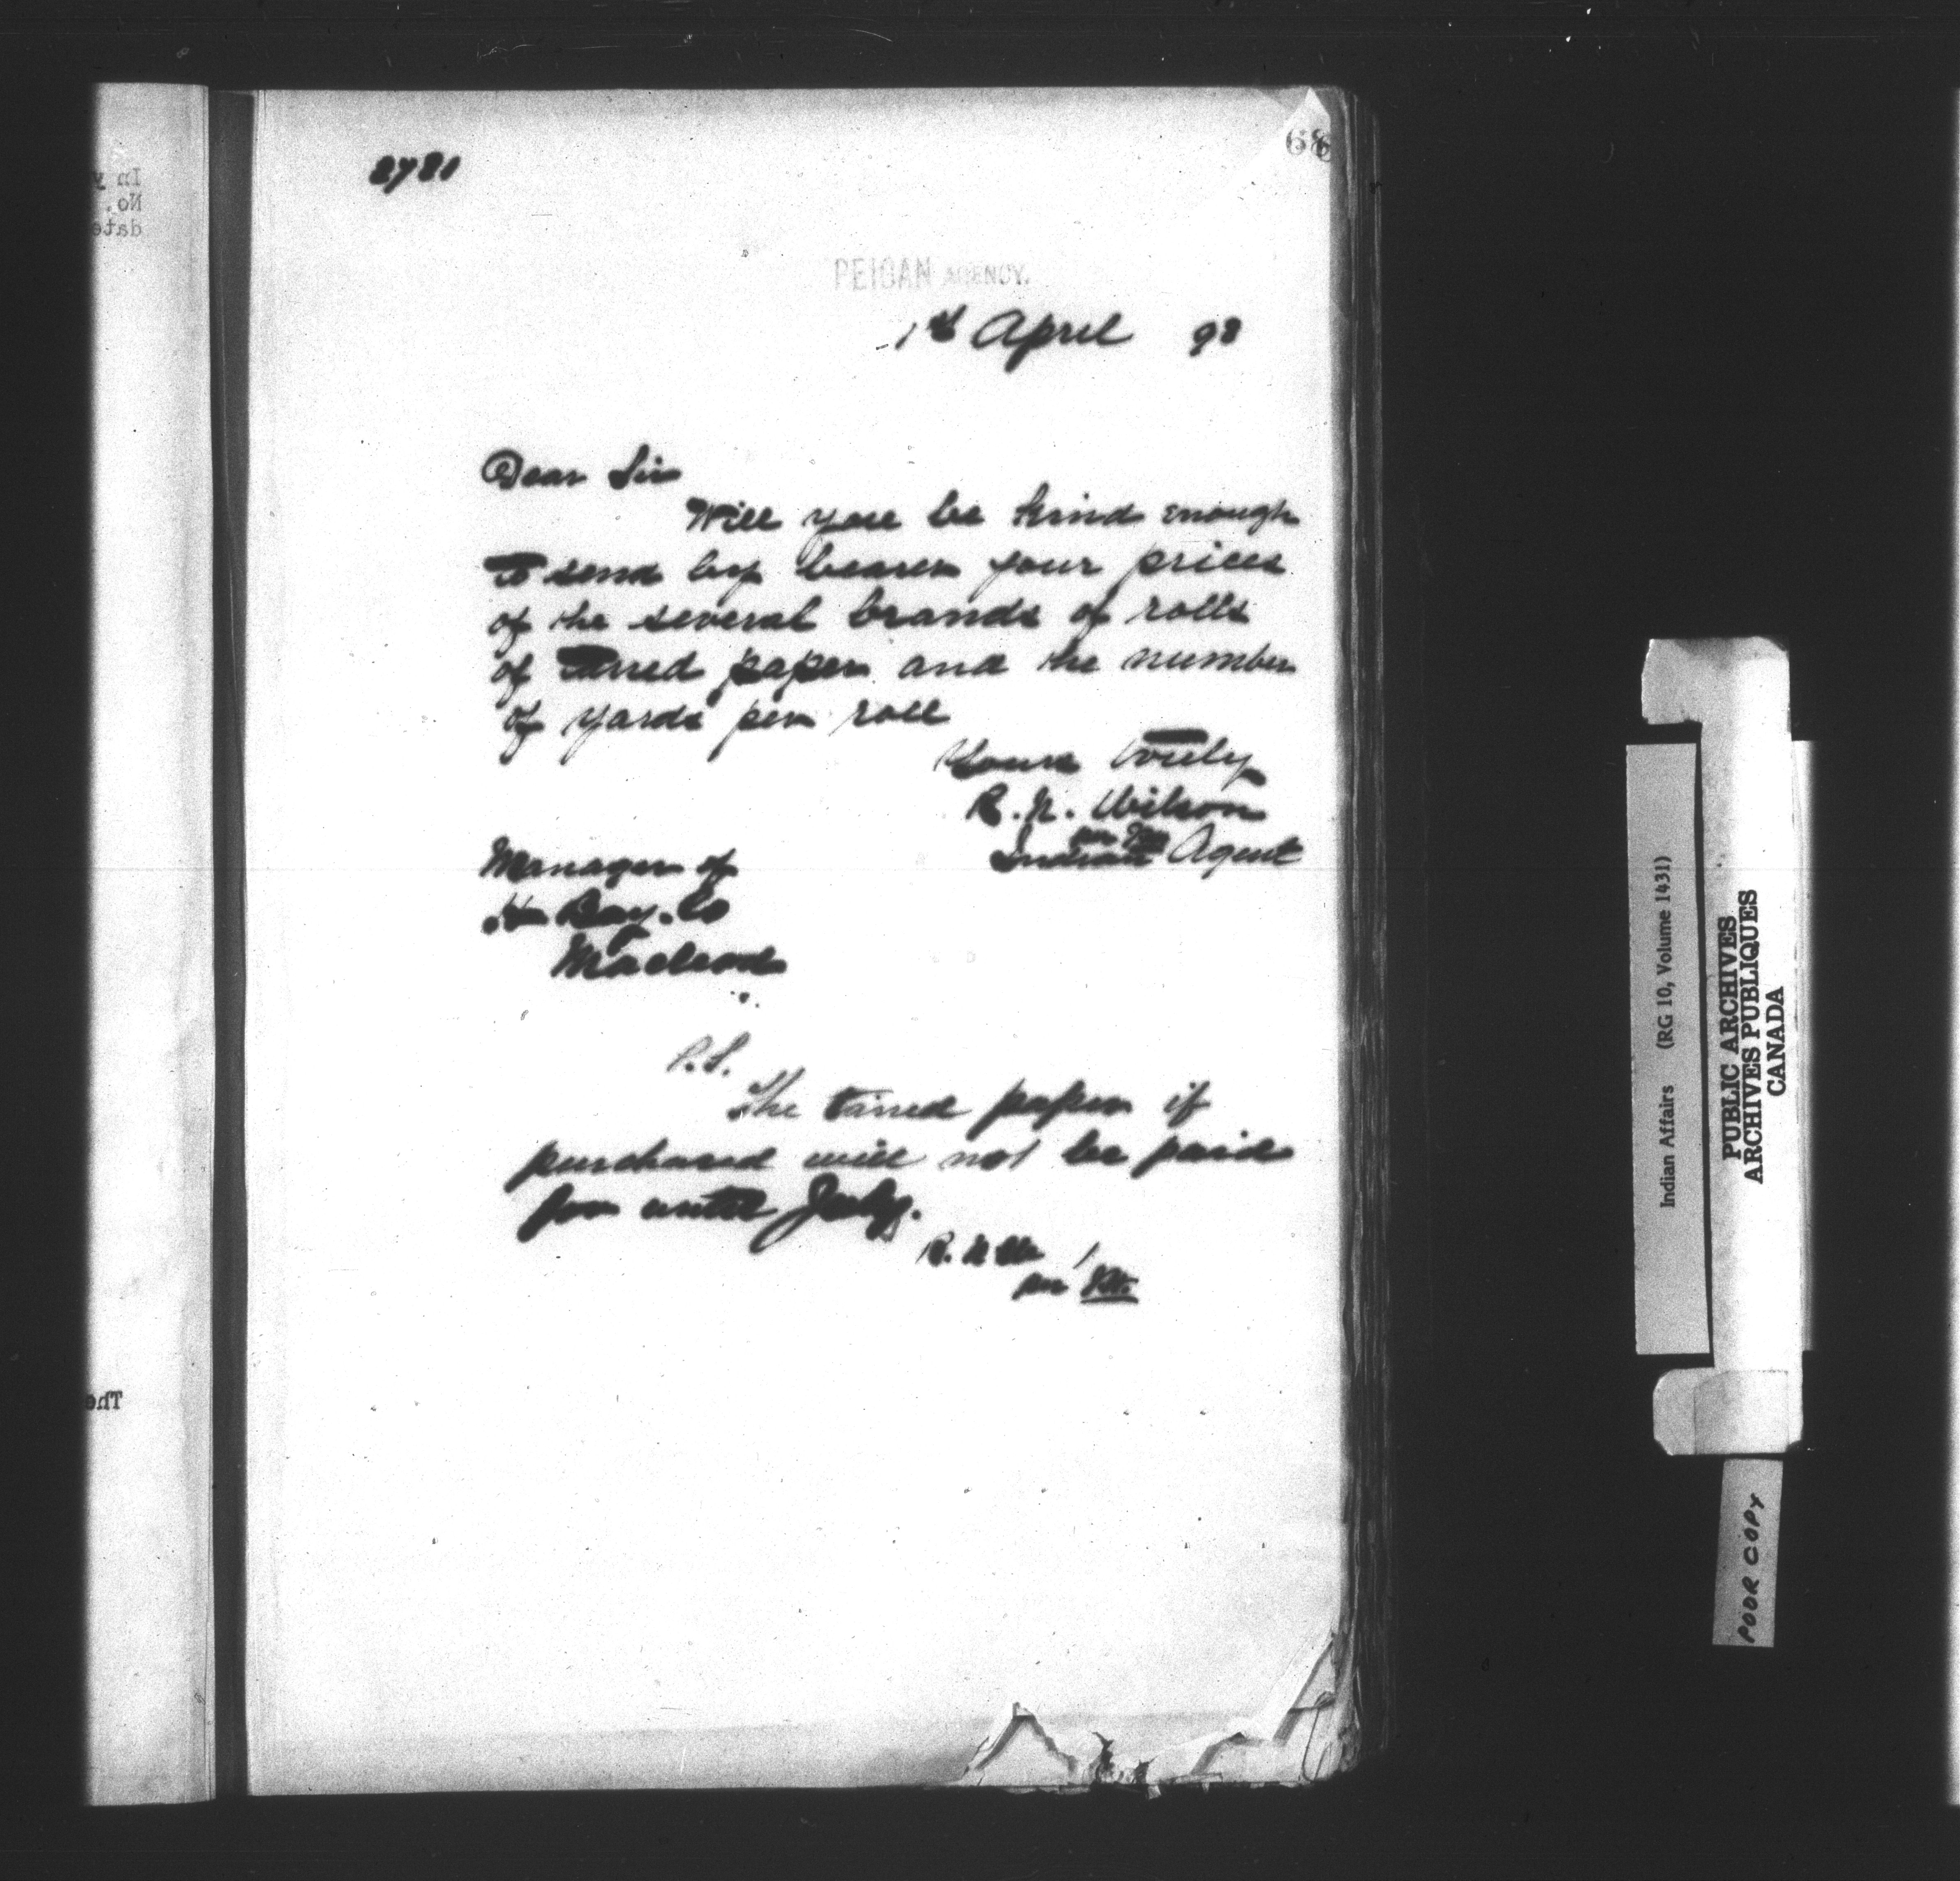 8781
68
PEIGAN AGENCY.
1st April 98
Dear Sir
Will you be kind enough
to send by bearer your prices
of the several brands of rolls
of tarred paper and the number
of yards per roll
Yours truly
R. N. Wilson
per
Indian Agent
Manager of
H Bay. Co
Macleod
P.S.
The tarred paper if
purchased will not be paid
for until July.
R. N. W.
per
In
No.
date
The
Indian Affairs (RG 10, Volume 1431)
PUBLIC ARCHIVES
ARCHIVES PUBLIQUES
CANADA
POOR COPY